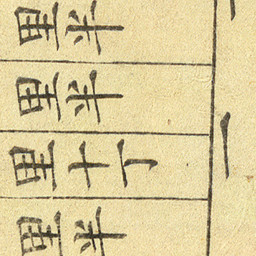 里半
里半
里十丁
一
里半